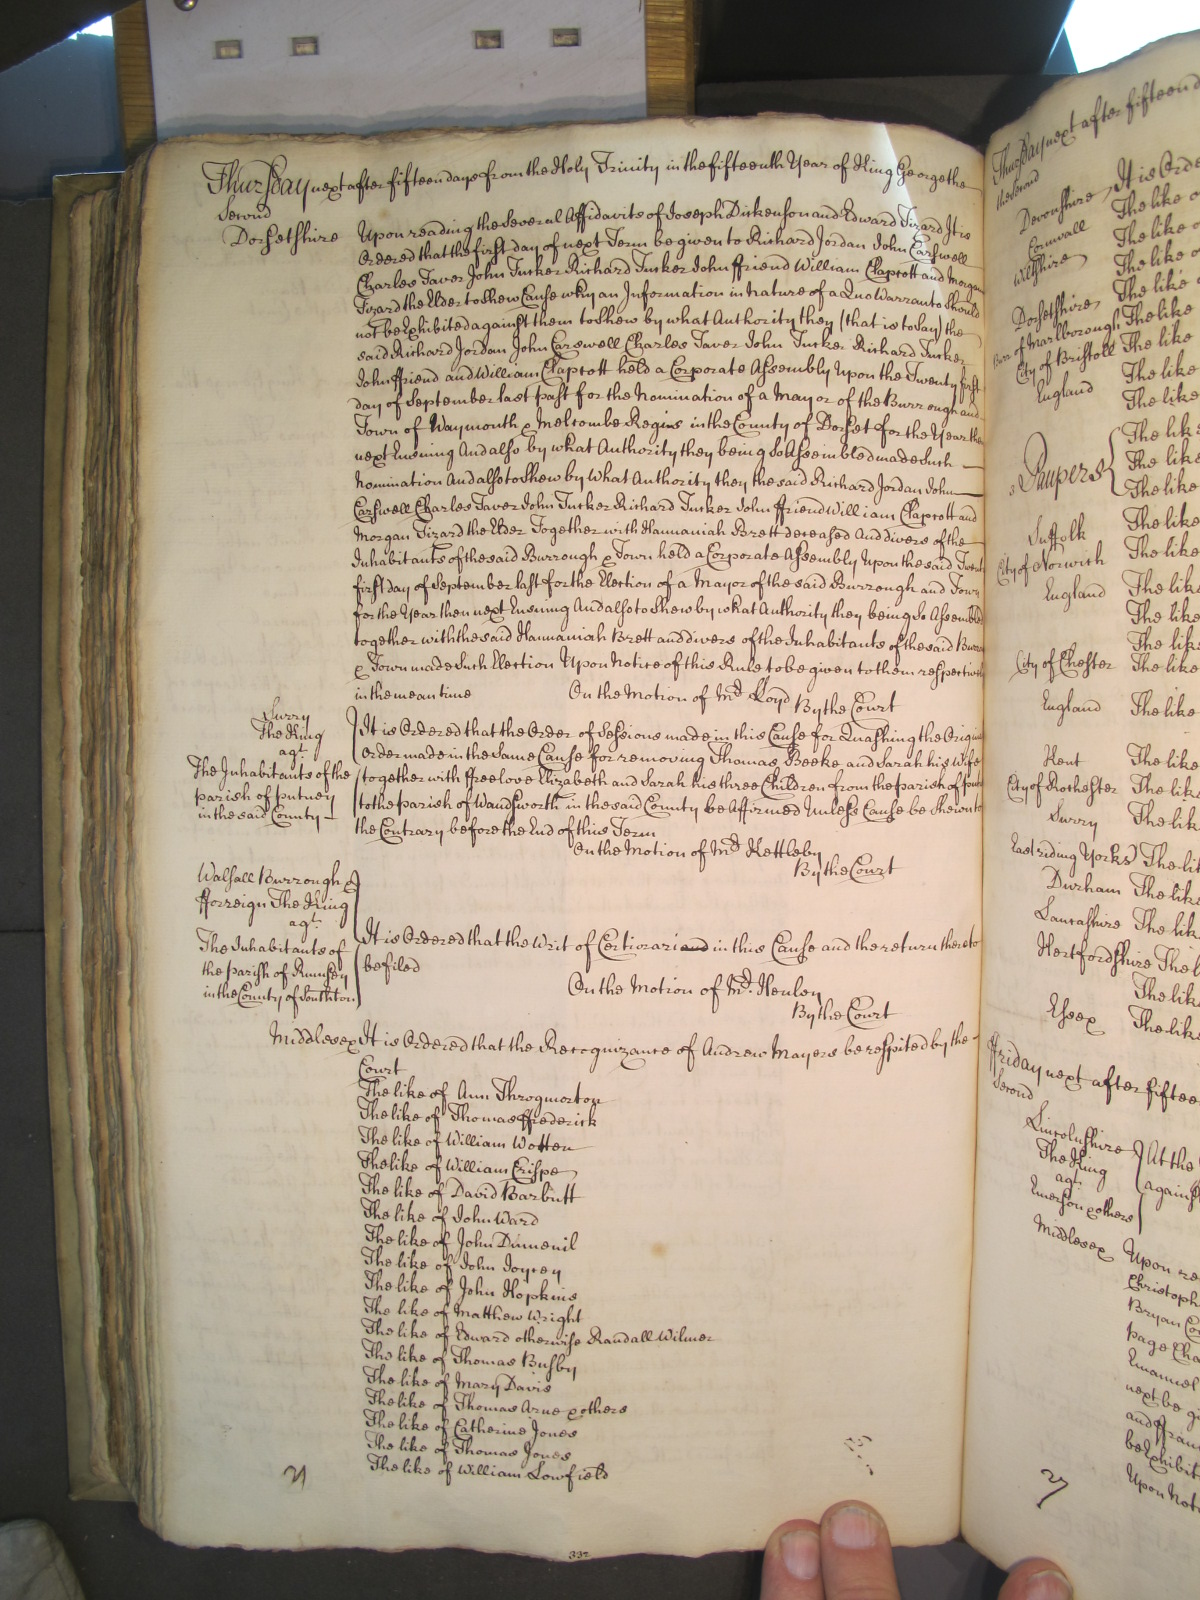 Thursday next after fifteen days from the Holy Trinity in the fifteenth Year of King George the
Second
Dorsetshire Upon reading the Several Affidavits of Joseph Dickenson and Edward Tizard It is
Ordered that the first day of next Term be given to Richard Jordan John Carswell
Charles Taver John Tucker Richard Tucker John ffriend William Clapcott and Morgan
Tizard the Elder to Shew Cause why an Information in nature of a Quo Warranto Should
not be Exhibited against them to Shew by what Authority they (that is to Say) the
said Richard Jordan John Carswell Charles Taver John Tucker Richard Tucker
John ffriend and William Clapcott held a Corporate Assembly Upon the Twenty first
day of September last past for the Nomination of a Mayor of the Burrough and
Town of Waymouth & Melcombe Regis in the County of Dorset for the Year then
next Ensuing And also by what Authority they being So Assembled made Such
Nomination And also to Shew by What Authority they the said Richard Jordan John
Carswell Charles Taver John Tucker Richard Tucker John ffriend William Clapcott and
Morgan Tizard the Elder Together with Hannaniah Brett deceased And divers of the
Inhabitants of the said Burrough & Town held a Corporate Assembly Upon the said Twenty
first day of September last for the Election of a Mayor of the said Burrough and Town
for the Year then next Ensuing And also to Shew by what Authority they being So Assembled
together with the said Hannaniah Brett and divers of the Inhabitants of the said Burrough
& Town made Such Election Upon Notice of this Rule to be given to them respectively
in the mean time On the Motion of Mr. Lloyd By the Court
Surry
The King
agt.
The Inhabitants of the
parish of putney
in the said County
It is Ordered that the Order of Sessions made in this Cause for Quashing the Original
Order made in the Same Cause for removing Thomas Beeke and Sarah his Wife
together with ffreelove Elizabeth and Sarah his three Children from the parish of putney
to the parish of Wandsworth in the said County be Affirmed Unless Cause be Shewn to
the Contrary before the End of this Term
On the Motion of Mr. Kettleby
By the Court
Walsall Burrough &
fforreign The King
agt.
The Inhabitants of
the parish of Rumsey
in the County of Southton
It is Ordered that the Writ of Certiorari and in this Cause and the return thereto
be filed
On the Motion of Mr. Henley
By the Court
Middlesex It is Ordered that the Recognizance of Andrew Mayers be respited by the
Court
The like of Ann Throgmorton
The like of Thomas ffrederick
The like of William Wotten
The like of William Crispe
The like of David Barbutt
The like of John Ward
The like of John Dumenil
The like of John Joycey
The like of John Hopkins
The like of Matthew Wright
The like of Edward otherwise Randall Wilmer
The like of Thomas Busby
The like of Mary Davis
The like of Thomas Arne & others
The like of Catherine Jones
The like of Thomas Jones
The like of William Lowfield
21
337
Thursday next after fifteen
the Second
Devonshire It is Orde
Cornwall The like o
Wiltshire The like o
The like o
Dorsetshire The like
Burr of Marlborough The like
City of Bristoll The like
England The like
The like
Paupers The like
The like
The like
Suffolk The like
City of Norwich The like
England The like
The like
The like
City of Chester The like
England The like
Kent The like
City of Rochester The like
Surry The like
East riding Yorks The like
Durham The like
Lancashire The like
Hertfordshire The l
The lik
Essex The lik
ffriday next after fiftee
Second
Lincolnshire
The King
agt.
Emerson & others
At the
against
Middlesex Upon re
Christoph
Bryan Co
page Cha
Emanuel
next be gi
and ffran
be Exhibit
Upon Noti